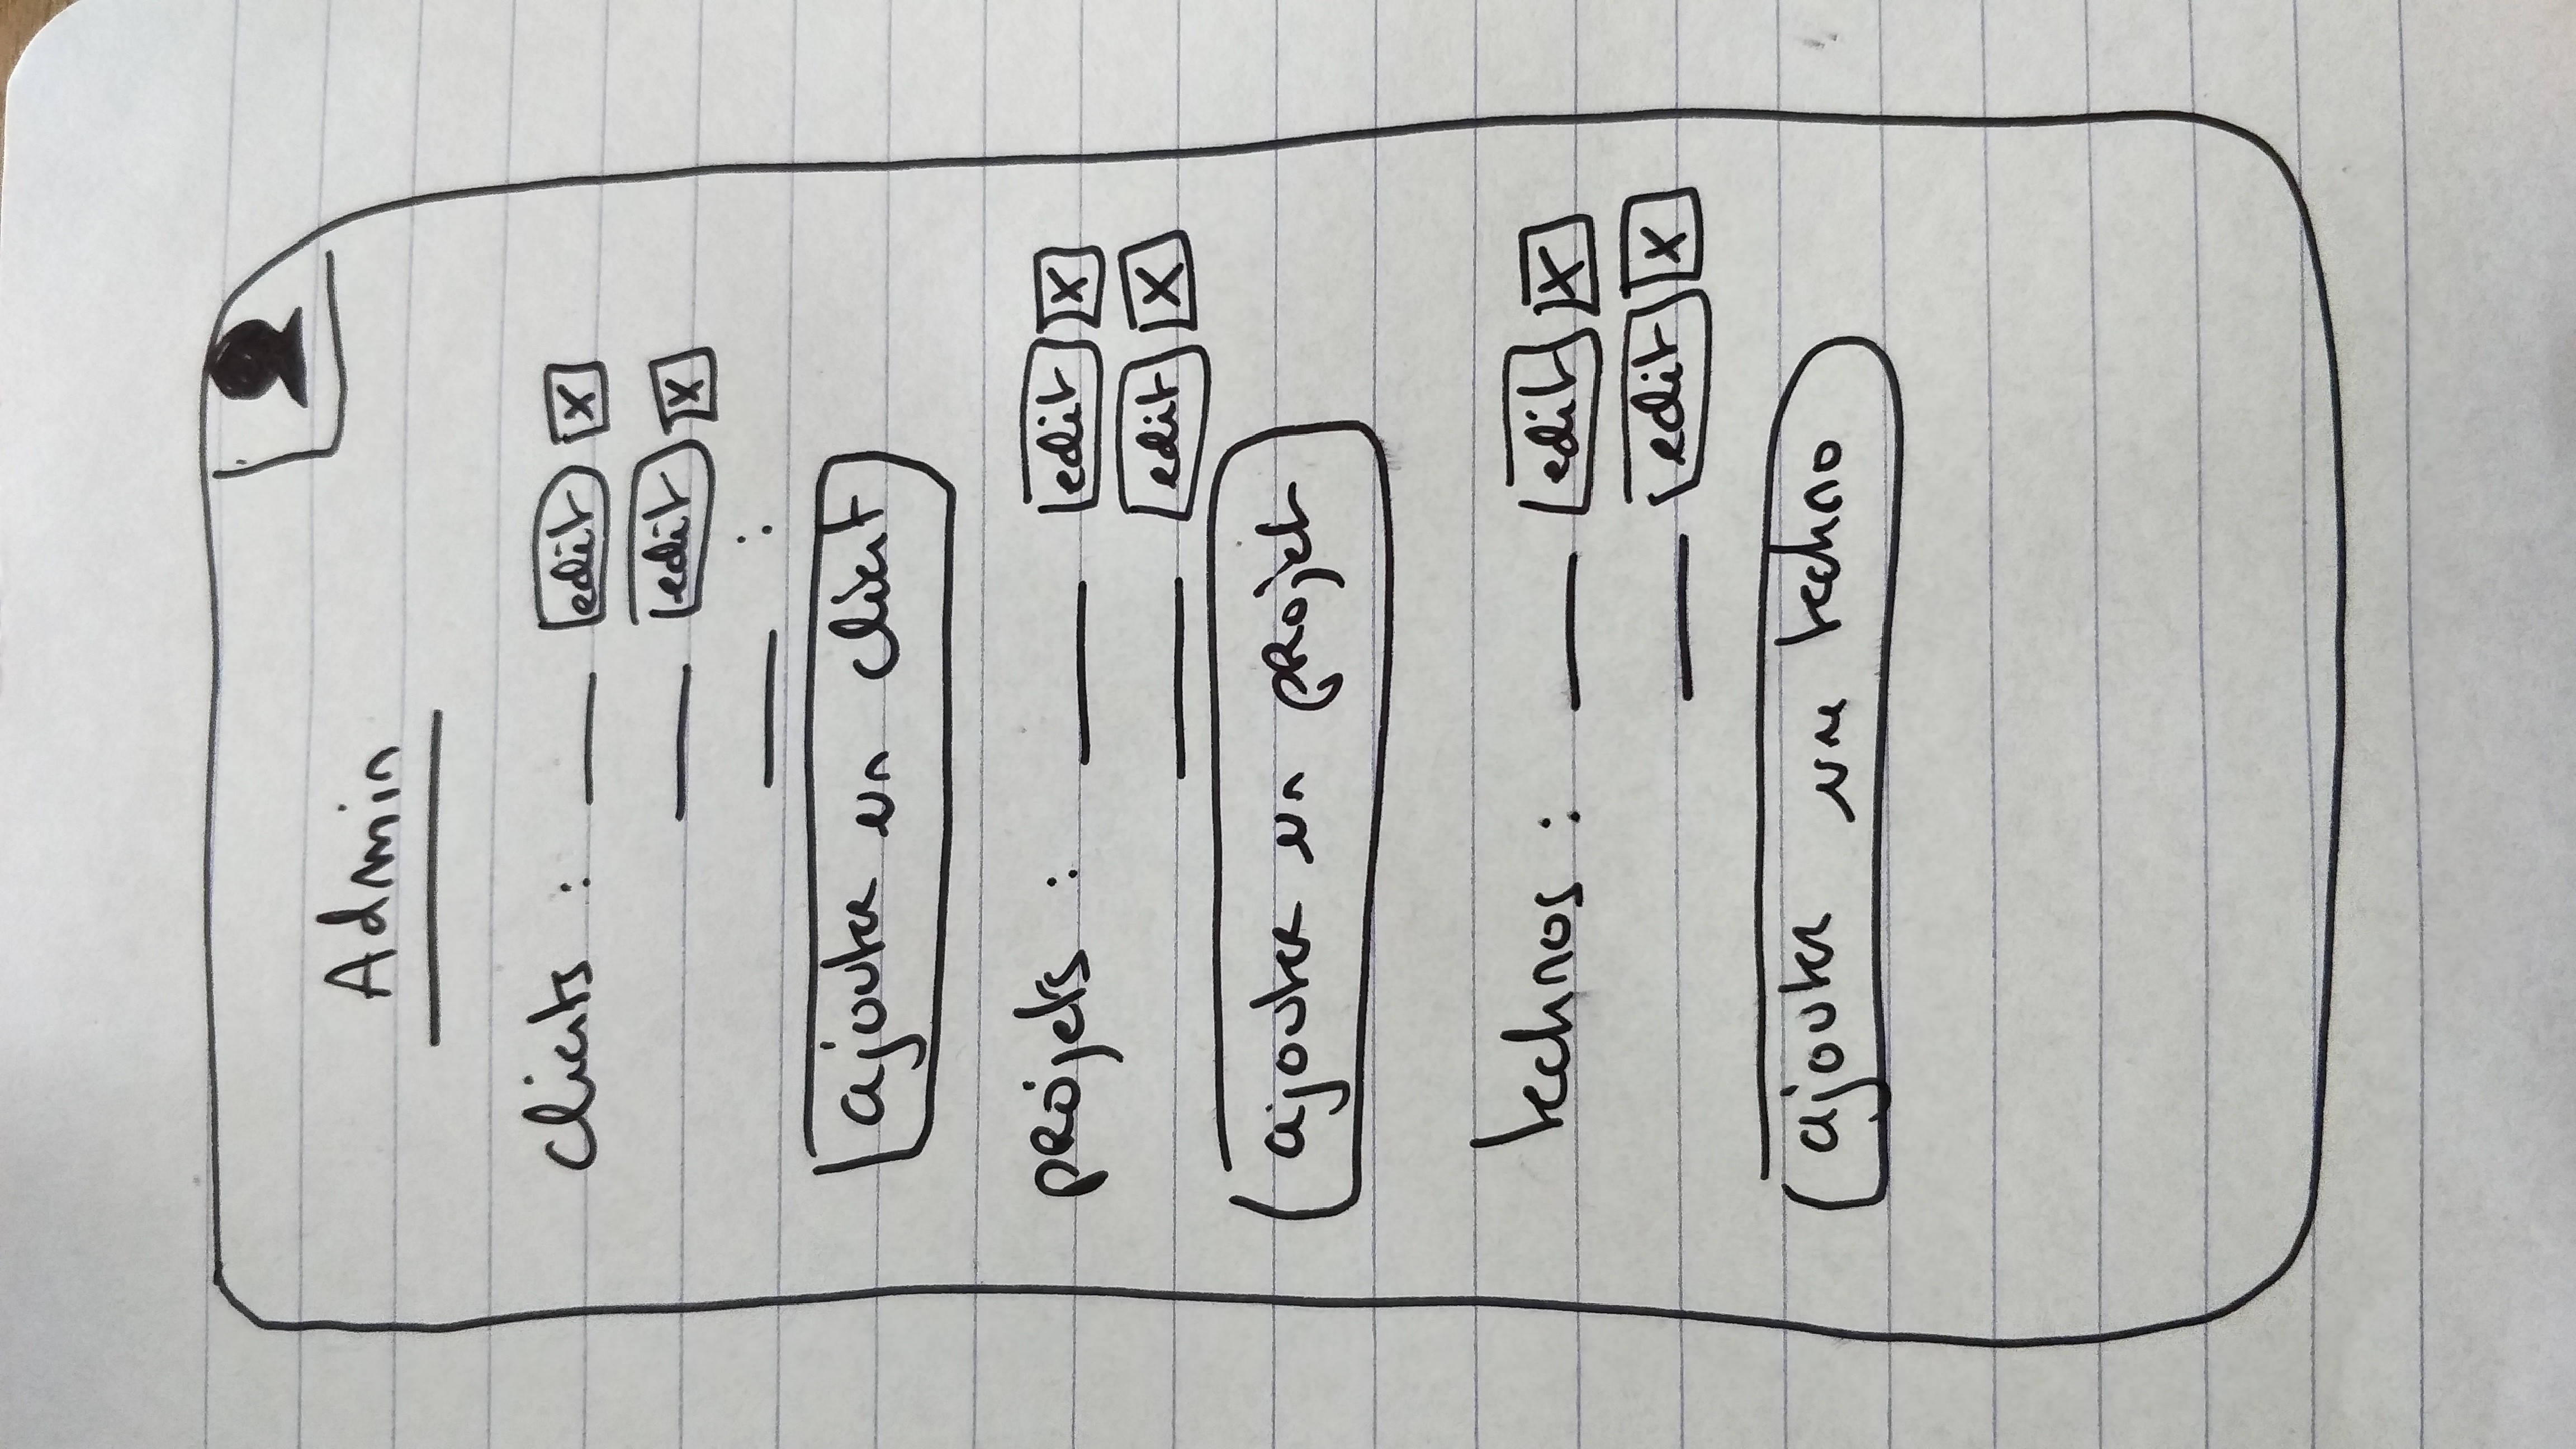 Admin
clients : edit X
edit X
:
ajouter un client
projets : edit X
edit X
ajouter un projet
technos : edit X
edit X
ajouter une techno